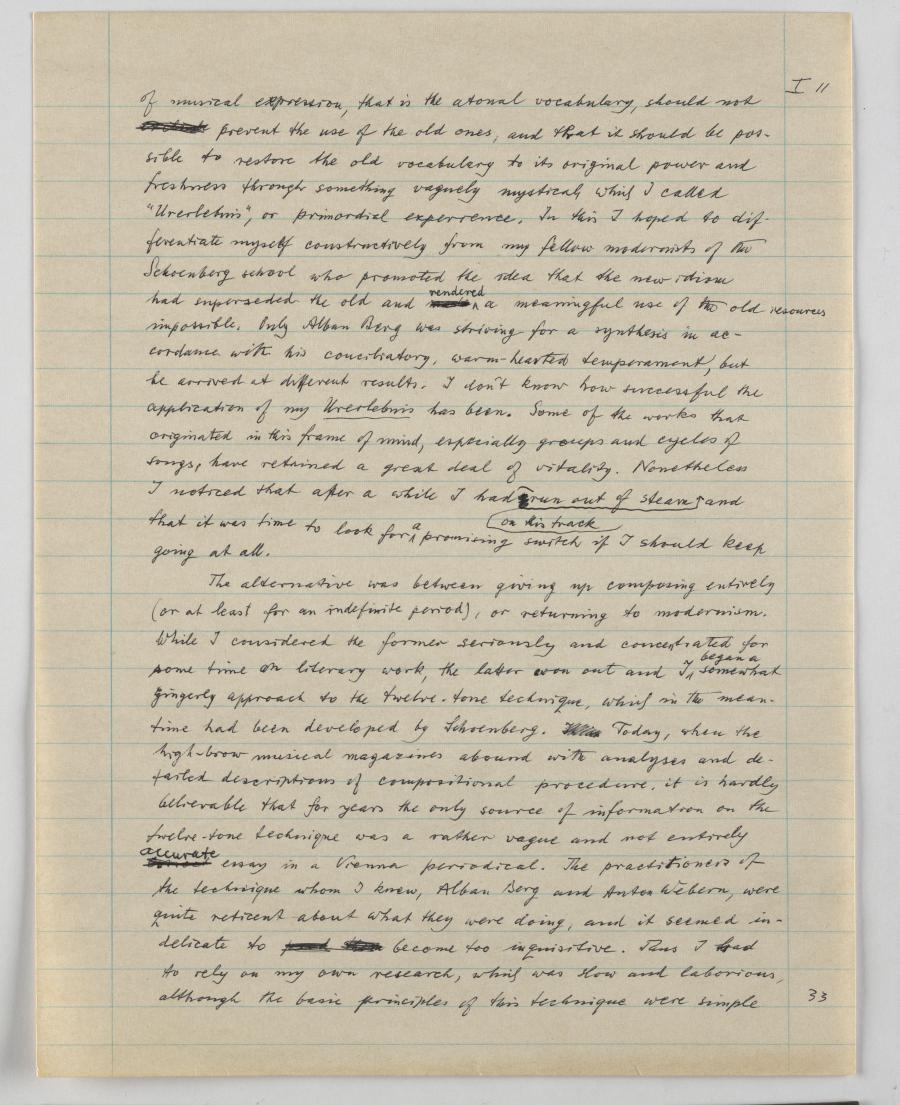 I 11
of musical expression, that is the atonal vocabulary, should not
prevent the use of the old ones, and that it should be pos-
sible to restore the old vocabulary to its original power and
freshness through something vaguely mystical, which I called
"Urerlebnis", or primordial experience. In this I hoped to dif-
ferentiate myself constructively from my fellow modernists of the
Schoenberg school who promoted the idea that the new idiom
had superseded the old and rendered a meaningful use of the old resources
impossible. Only Alban Berg was striving for a synthesis in ac-
cordance with his conciliatory, warm-hearted temperament, but
he arrived at different results. I don't know how successful the
application of my Urerlebnis has been. Some of the works that
originated in this frame of mind, especially groups and cycles of
songs, have retained a great deal of vitality. Nonetheless
I noticed that after a while I had run out of steam and
on this track
that it was time to look for a promising switch if I should keep
going at all.
The alternative was between giving up composing entirely
(or at least for an indefinite period), or returning to modernism.
While I considered the former seriously and concentrated for
some time on literary work, the latter won out and I began a somewhat
gingerly approach to the twelve-tone technique, which in the mean-
time had been developed by Schoenberg. Today, when the
high-brow musical magazines abound with analyses and de-
tailed descriptions of compositional procedure, it is hardly
believable that for years the only source of information on the
twelve-tone technique was a rather vague and not entirely
accurate essay in a Vienna periodical. The practitioners of
the technique whom I knew, Alban Berg and Anton Webern, were
quite reticent about what they were doing, and it seemed in-
delicate to become too inquisitive. Thus I had
to rely on my own research, which was slow and laborious,
although the basic principles of this technique were simple
33